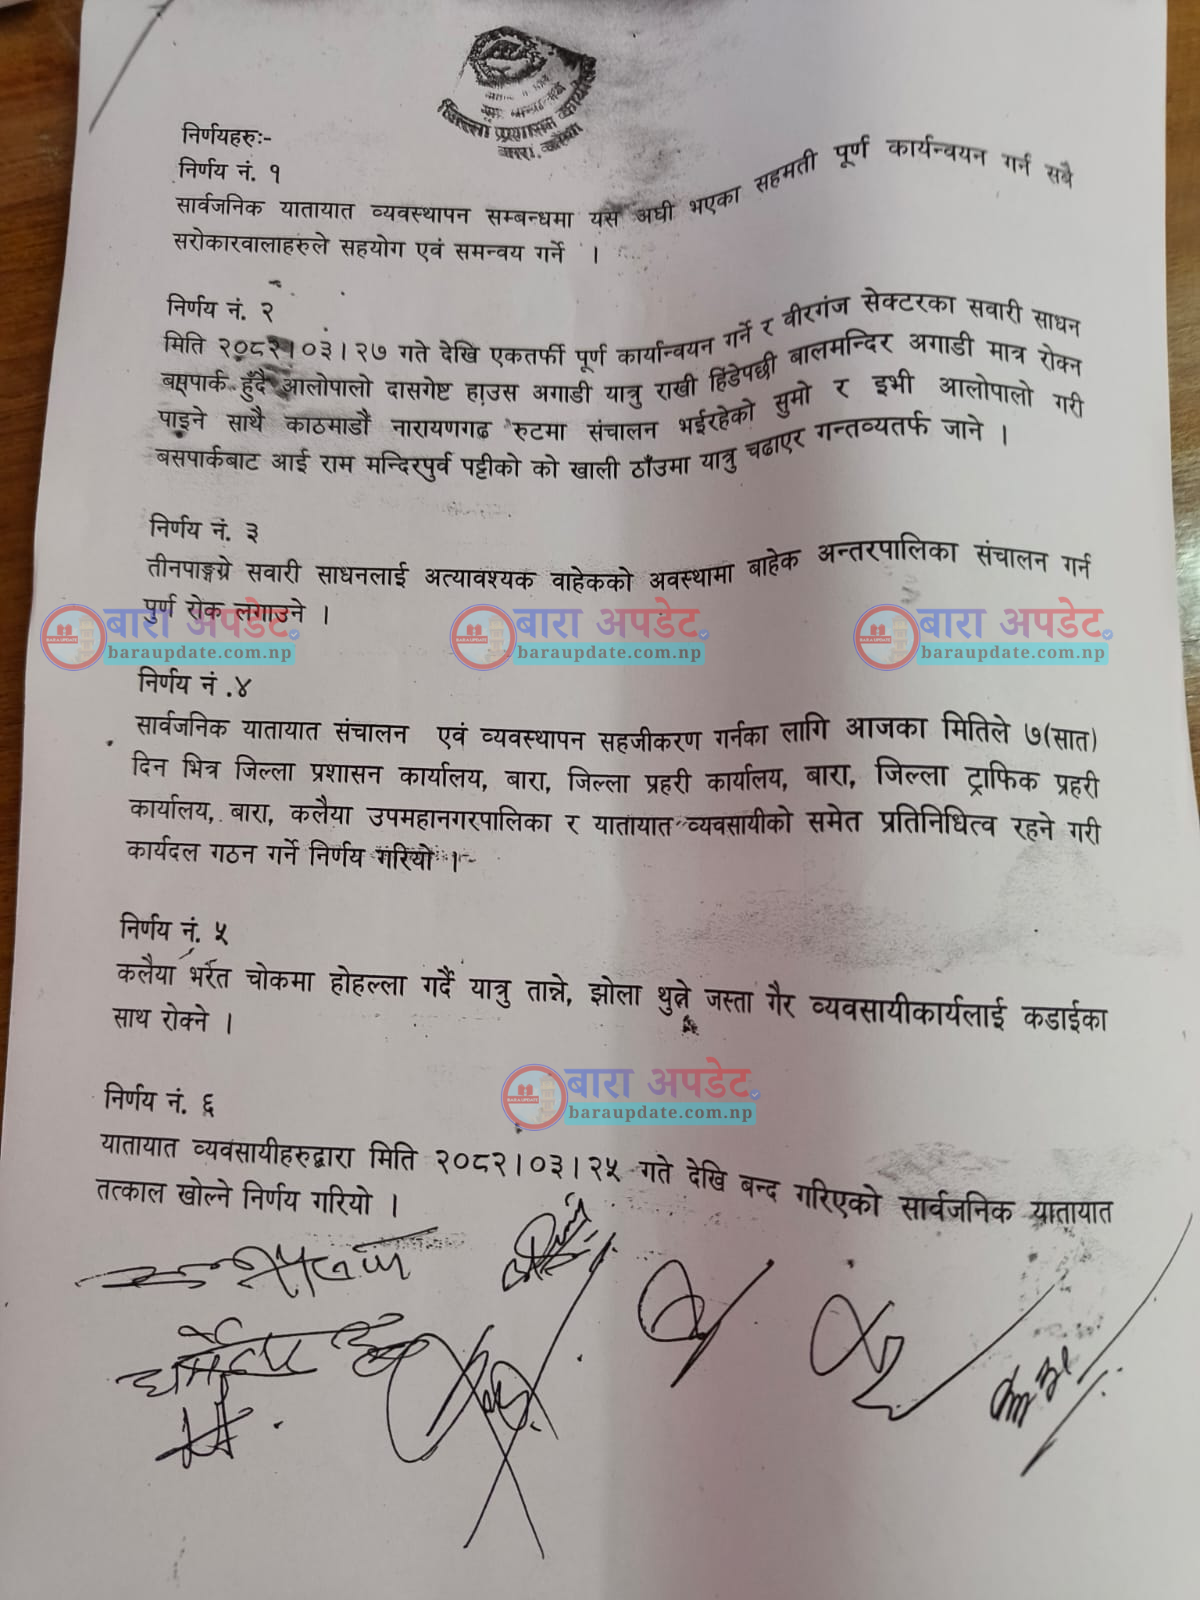 जिल्ला प्रशासन कार्यालय
बारा, कलैया
निर्णयहरुः-
निर्णय नं. १
सार्वजनिक यातायात व्यवस्थापन सम्बन्धमा यस अघी भएका सहमती पूर्ण कार्यन्वयन गर्न सबै
सरोकारवालाहरुले सहयोग एवं समन्वय गर्ने ।
निर्णय नं. २
मिति २०८२।०३।२७ गते देखि एकतर्फी पूर्ण कार्यान्वयन गर्ने र वीरगंज सेक्टरका सवारी साधन
बसपार्क हुँदै आलोपालो दासगेष्ट हाउस अगाडी यात्रु राखी हिंडेपछी बालमन्दिर अगाडी मात्र रोक्न
पाइने साथै काठमाडौं नारायणगढ रुटमा संचालन भईरहेको सुमो र इभी आलोपालो गरी
बसपार्कबाट आई राम मन्दिरपुर्व पट्टीको को खाली ठाँउमा यात्रु चढाएर गन्तव्यतर्फ जाने ।
निर्णय नं. ३
तीनपाङ्ग्रे सवारी साधनलाई अत्यावश्यक वाहेकको अवस्थामा बाहेक अन्तरपालिका संचालन गर्न
पुर्ण रोक लगाउने ।
बारा अपडेट
baraupdate.com.np
बारा अपडेट
baraupdate.com.np
बारा अपडेट
baraupdate.com.np
निर्णय नं .४
सार्वजनिक यातायात संचालन एवं व्यवस्थापन सहजीकरण गर्नका लागि आजका मितिले ७(सात)
दिन भित्र जिल्ला प्रशासन कार्यालय, बारा, जिल्ला प्रहरी कार्यालय, बारा, जिल्ला ट्राफिक प्रहरी
कार्यालय, बारा, कलैया उपमहानगरपालिका र यातायात व्यवसायीको समेत प्रतिनिधित्व रहने गरी
कार्यदल गठन गर्ने निर्णय गरियो ।
निर्णय नं. ५
कलैया भरत चोकमा होहल्ला गर्दै यात्रु तान्ने, झोला थुत्ने जस्ता गैर व्यवसायीकार्यलाई कडाईका
साथ रोक्ने ।
बारा अपडेट
baraupdate.com.np
निर्णय नं. ६
यातायात व्यवसायीहरुद्वारा मिति २०८२।०३।२५ गते देखि बन्द गरिएको सार्वजनिक यातायात
तत्काल खोल्ने निर्णय गरियो ।